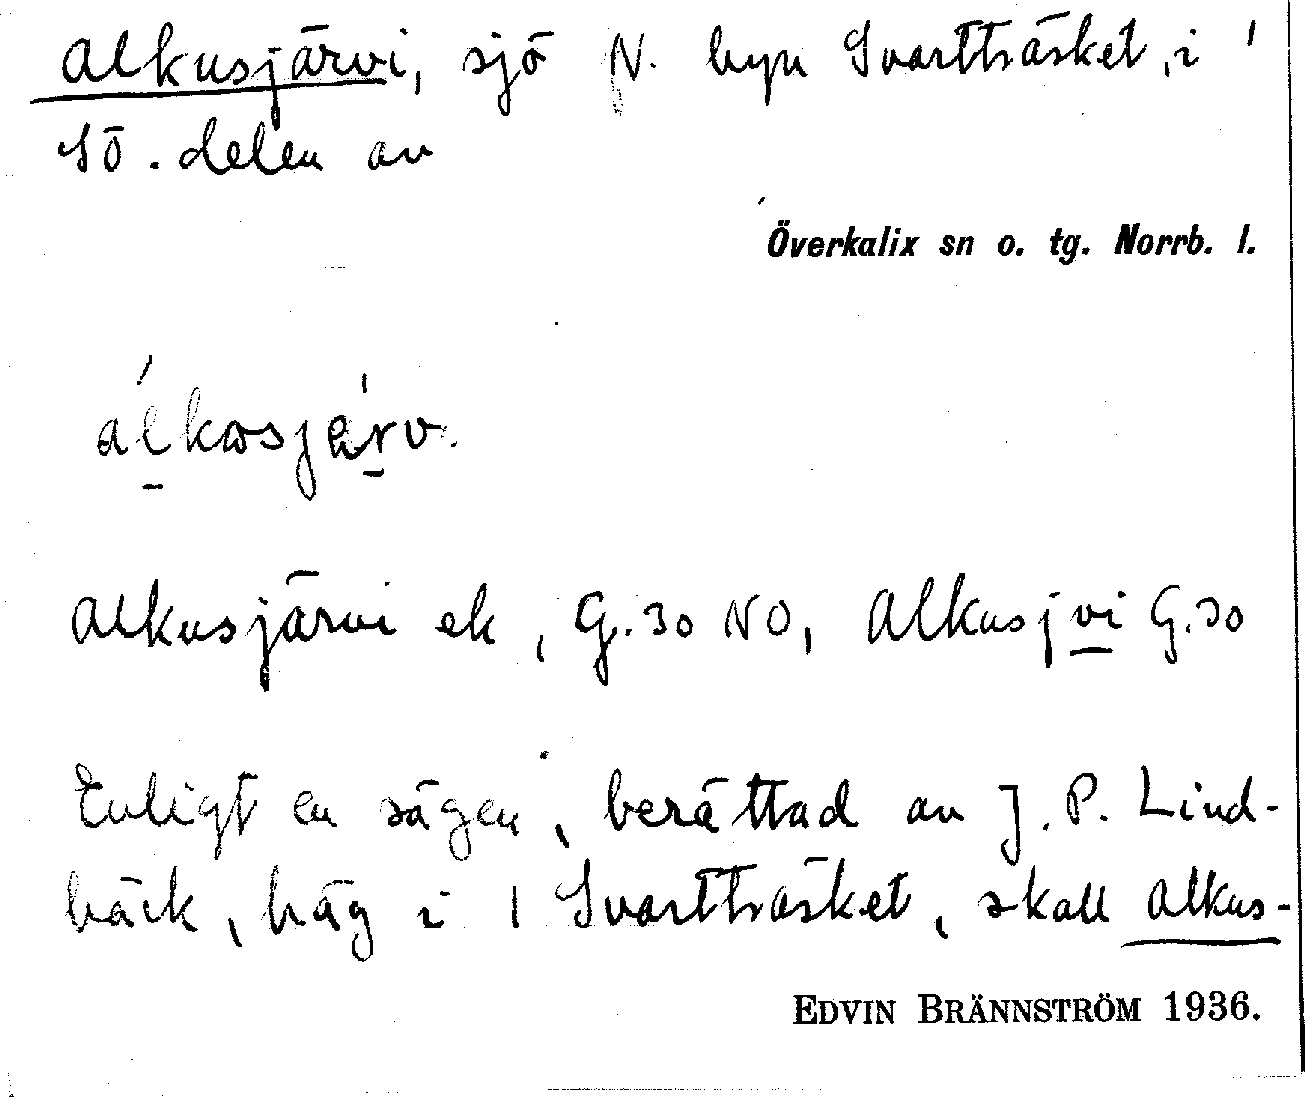 Alkusjärvi, sjö N. byn Svartträsket, i
SÖ. delen av
Överkalix sn o. tg. Norrb. l.
álkosjärv.
Alkusjärvi ek, G.30 NO, Alkusjvi G.30
Enligt en sägen, berättad av J. P. Lind-
bäck, häg i Svartträsket, skall Alkus-
EDVIN BRÄNNSTRÖM 1936.